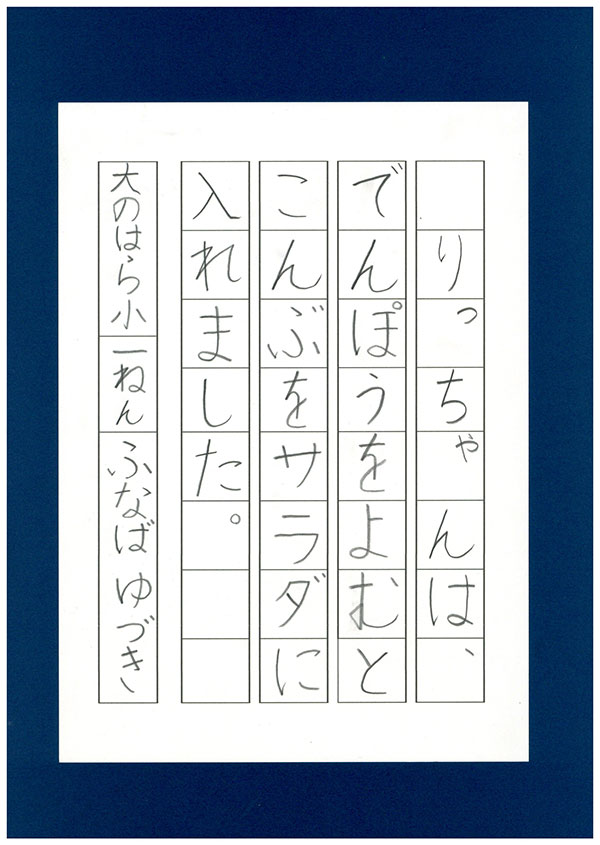 りっちゃんは、
でんぽうをよむと
こんぶをサラダに
入れました。
大のはら小 一ねん ふなば ゆづき